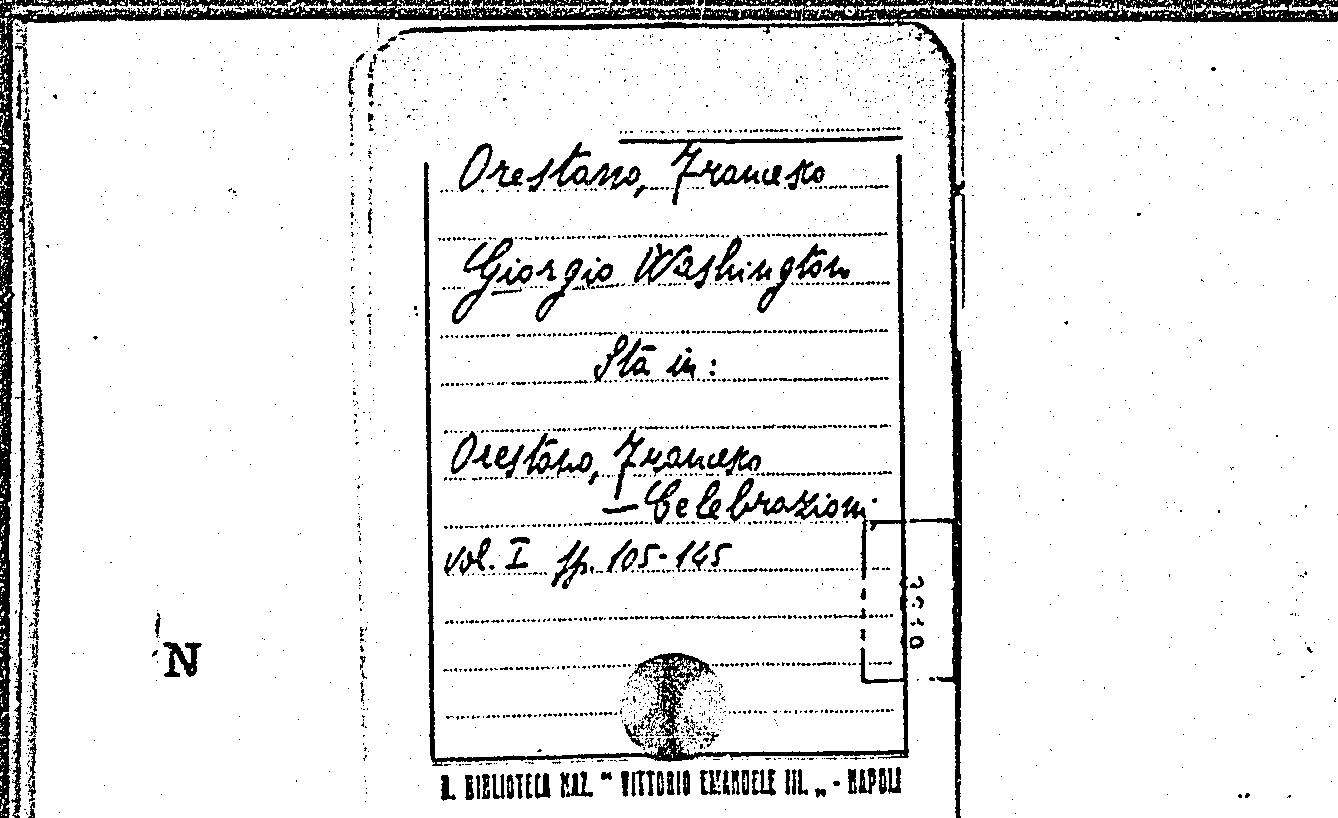 Orestano, Francesco
Giorgio Washington
Sta in:
Orestano, Francesco
— Celebrazioni
vol. I pp. 105-145
N
R. BIBLIOTECA NAZ. " VITTORIO EMANUELE III. „ - NAPOLI